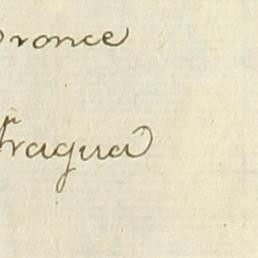 bronce
fragua